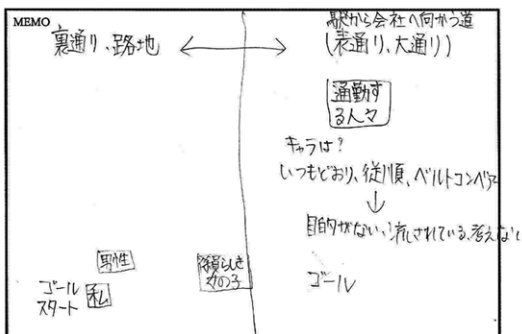 MEMO
裏通り、路地
駅から会社へ向かう道
(表通り、大通り)
通勤す
る人々
キャラは?
いつもどおり、従順、ベルトコンベアー
↓
目的がない、流されている、考えない
男性
らしき
女の子
ゴール
スタート
私
ゴール